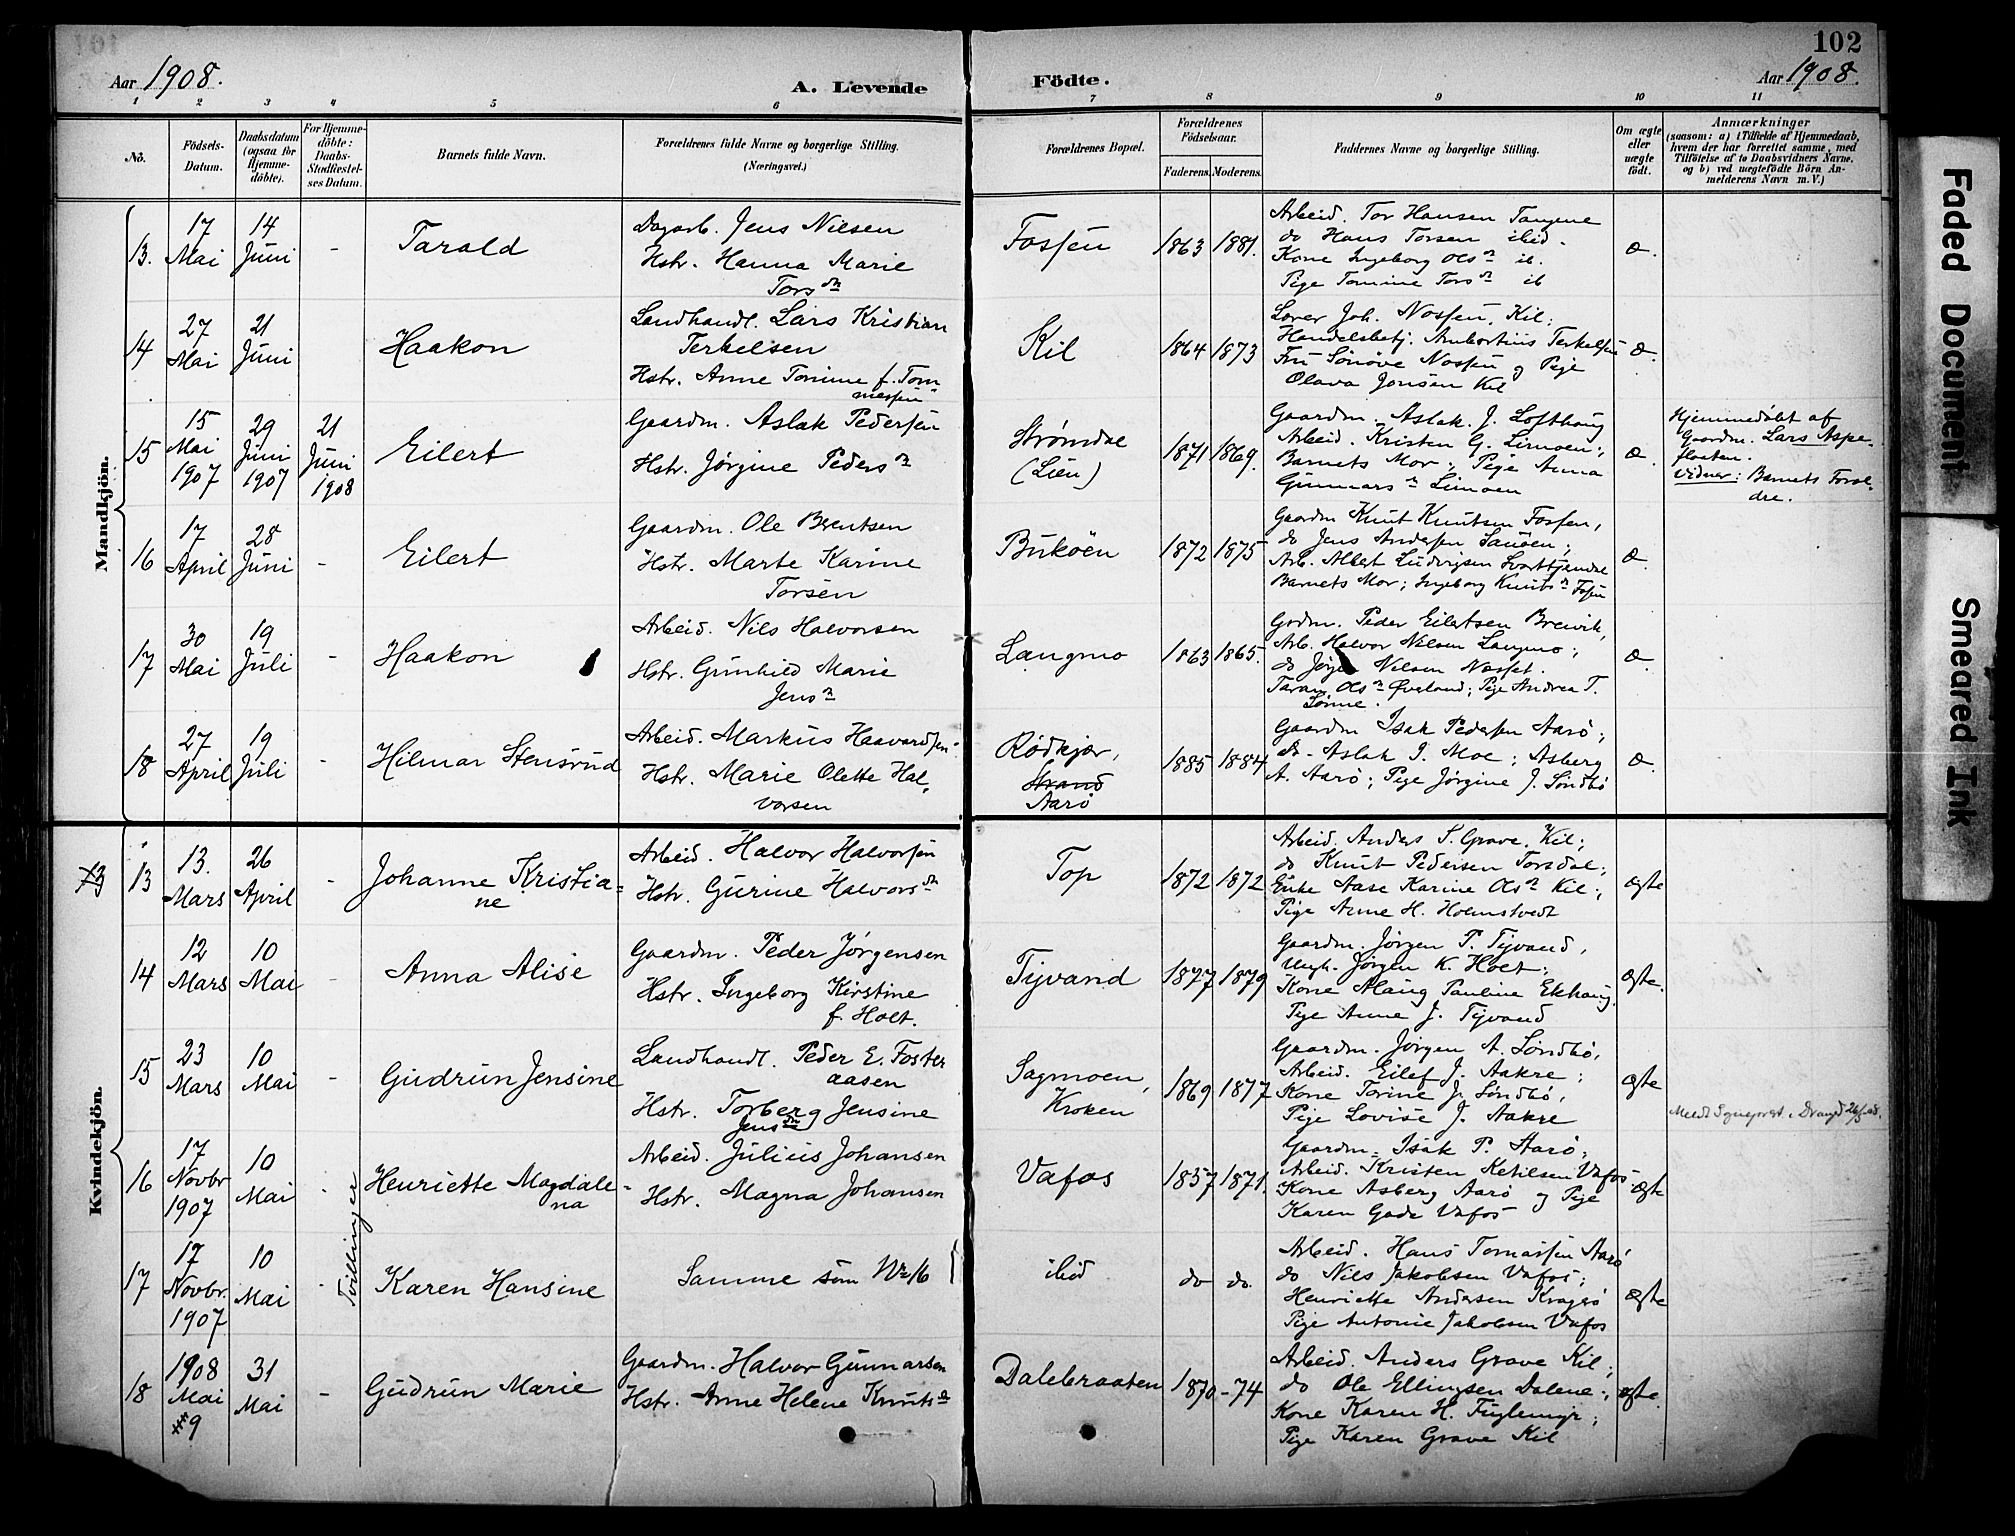 102
Aar 1908.
A. Levende
Födte.
Aar 1908.
1 2 3 4 5 6 7 8 9 10 11
No.
Födsels-
Datum.
Daabsdatum
(ogsaa for
Hjemme-
döbte).
For Hjemme-
döbte:
Daabs-
Stadfæstel-
ses Datum.
Barnets fulde Navn.
Forældrenes fulde Navne og borgerlige Stilling.
(Næringsvei.)
Forældrenes Bopæl.
Forældrenes
Födselsaar.
Faderens. Moderens.
Faddernes Navne og borgerlige Stilling.
Om ægte
eller
uægte
födt.
Anmærkninger
(saasom: a) i Tilfælde af Hjemmedaab,
hvem der har forrettet samme, med
Tilföielse af to Daabsvidners Navne,
og b) ved uægtefödte Börn An-
melderens Navn m. V.)
Mandkjön.
13.
17
Mai
14
Juni
-
Tarald
Dagarb. Jens Nielsen
Hstr. Hanna Marie
Torsdn
Fossen
1863 1881.
Arbeid. Tor Hansen Tangene
do Hans Torsen ibid.
Kone Ingeborg Olsn ib.
Pige Tomine Torsn ib
Æ.
14
27
Mai
21
Juni
Haakon
Landhandl. Lars Kristian
Terkelsen
Hstr. Anne Tomine f. Tom
messen
Kil
1864 1873
Joh. Nossen, Kil;
Handelsbetj. Ambortius Terkelsen
Fru Sönöve Nossen og Pige
Olava Jensen Kil
Æ.
15
15
Mai
1907
29
Juni
1907
21
Juni
1908
Eilert
Gaardm. Aslak Pedersen
Hstr. Jørgine Pedersn
Strømdae
(Lien)
1871 1869.
Gaardm. Aslak. J. Lofthaug
Arbeid. Kristen G. Limoen;
Barnets Mor; Pige Anna
Gunnarsn Limoen
Æ.
Hjemmedøbt af
Gaardm. Lars Aspe-
flaaten.
Vidner: Barnets Foræl-
dre.
16
17
April
28
Juni
-
Eilert
Gaardm. Ole Berntsen
Hstr. Marte Karine
Torsen
Buköen
1872 1875
Gaardm Knut Knutsen Fossen,
do Jens Andersen Sauöen;
Arb. Albert Ludvigsen Svarttjendae
Barnets Mor; Ingeborg Knutsn Fossen
Æ.
17
30
Mai
19
Juli
-
Haakon
Arbeid. Nils Halvorsen
Hstr. Gunhild Marie
Jensn
Langmo
1863 1865.
Grdm. Peder Eilertsen Breivik,
Arb. Halvor Nilsen Langmo;
do Jörgen Nilsen Næsset.
Taran Olsn Øveland; Pige Andrea T.
Lönne.
Æ.
18
27
April
19
Juli
-
Hilmar Stensrud
Arbeid. Markus Haavardsen
Hstr. Marie Olette Hal-
vorsen
Rødkjær,
Strand
Aarö
1885 1884
Gaardm Isak Pedersen Aarö;
do - Aslak I. Moe; Asberg
A. Aarö; Pige Jørgine J. Söndbö
Æ.
Kvindekjön.
13
13.
Mars
26
April
-
Johanne Kristia-
ne
Arbeid. Halvor Halvorsen
Hstr. Gurine Halvorsdn
Top
1872 1872
Arbeid. Anders S. Grave, Kil;
do Knut Pedersen Torsdal;
Enke Aase Karine Olsn Kil;
Pige Anne H. Holmstvedt
Ægte
14
12
Mars
10
Mai
-
Anna Alise
Gaardm. Peder Jørgensen
Hstr. Ingeborg Kirstine
f. Holt.
Tyvand
1877 1879
Gaardm. Jørgen P. Tyvand,
Ungk. Jørgen K. Holt;
Kone Alaug Pauline Ekhaug
Pige Anne J. Tyvand
Ægte.
15
23
Mars
10
Mai
-
Gudrun Jensine
Landhandl. Peder E. Foster
aasen
Hstr. Torberg Jensine
Jensdn
Sagmoen,
Kroken
1869 1877
Gaardm. Jörgen A. Söndbö,
Arbeid. Eilef J. Aakre;
Kone Torine J. Söndbö,
Pige Lovise J. Aakre
Ægte
16
17
Novbr
1907
10
Mai
-
Tvillinger
Henriette Magdale-
na
Arbeid. Julius Johansen
Hstr. Magna Johansen
Vafos
1857 1871.
Gaardm. Isak P. Aarö;
Arbeid. Kristen Ketilsen Vafos
Kone Asberg Aarö og Pige
Karen Gade Vafos
Ægte
17
17
Novbr.
1907
10
Mai
-
Karen Hansine
Samme som No 16
ibid
do do.
Arbeid. Hans Tomassen Aarö
do Nils Jakobsen Vafos;
Henriette Andersen Kragerö
Pige Antonie Jakobsen Vafos
Ægte
18
1908
Mai
9
31
Mai
-
Gudrun Marie
Gaardm. Halvor Gunnarsen
Hstr. Anne Helene Knutsn
Dalebraaten
1870 -74
Arbeid. Anders Grave Kil;
do Ole Ellingsen Dalene;
Kone Karen H. Fuglemyr;
Pige Karen Grave Kil
Ægte.
Faded Document
Smeared Ink